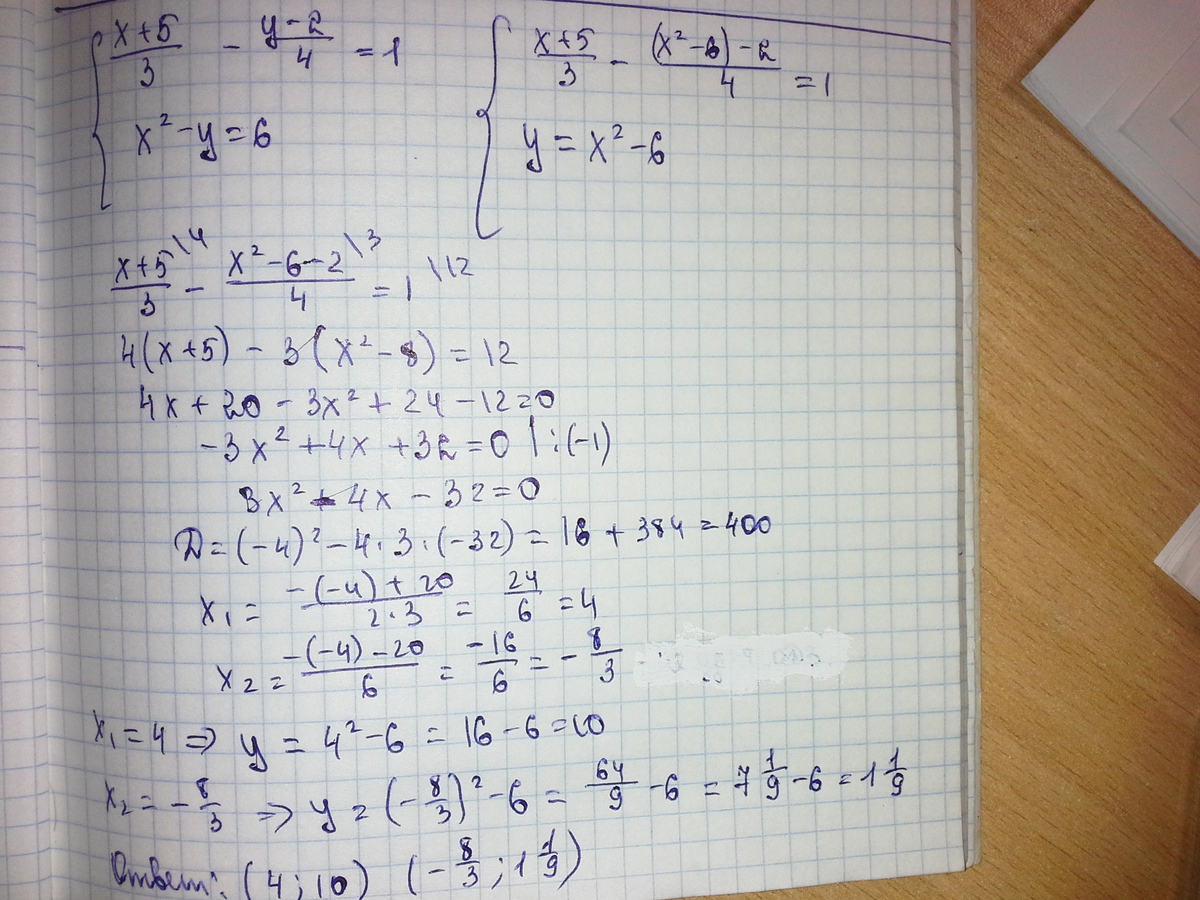 (x+5)/3 - (y-2)/4 = 1
x² - y = 6
(x+5)/3 - ((x²-6)-2)/4 = 1
y = x² - 6
(x+5)/3 \4 - (x²-6-2)/4 \3 = 1 \12
4(x+5) - 3(x²-8) = 12
4x + 20 - 3x² + 24 - 12 = 0
-3x² + 4x + 32 = 0 | :(-1)
3x² - 4x - 32 = 0
D = (-4)² - 4·3·(-32) = 16 + 384 = 400
x₁ = (-(-4)+20)/(2·3) = 24/6 = 4
x₂ = (-(-4)-20)/6 = -16/6 = -8/3
x₁ = 4 ⇒ y = 4² - 6 = 16 - 6 = 10
x₂ = -8/3 ⇒ y = (-8/3)² - 6 = 64/9 - 6 = 7 1/9 - 6 = 1 1/9
Ответ: (4; 10) (-8/3; 1 1/9)